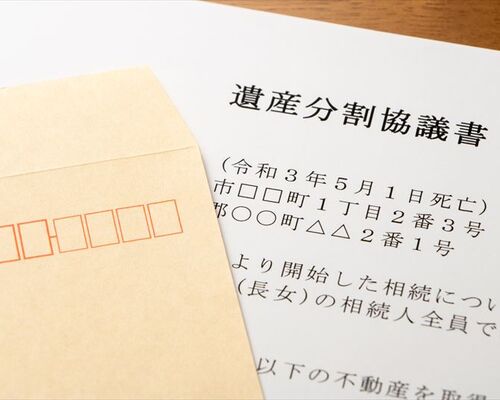 遺産分割協議書
(令和3年5月1日死亡)
市□□町1丁目2番3号
郡○○町△△2番1号
より開始した相続につい
(長女)の相続人全員で
以下の不動産を取得